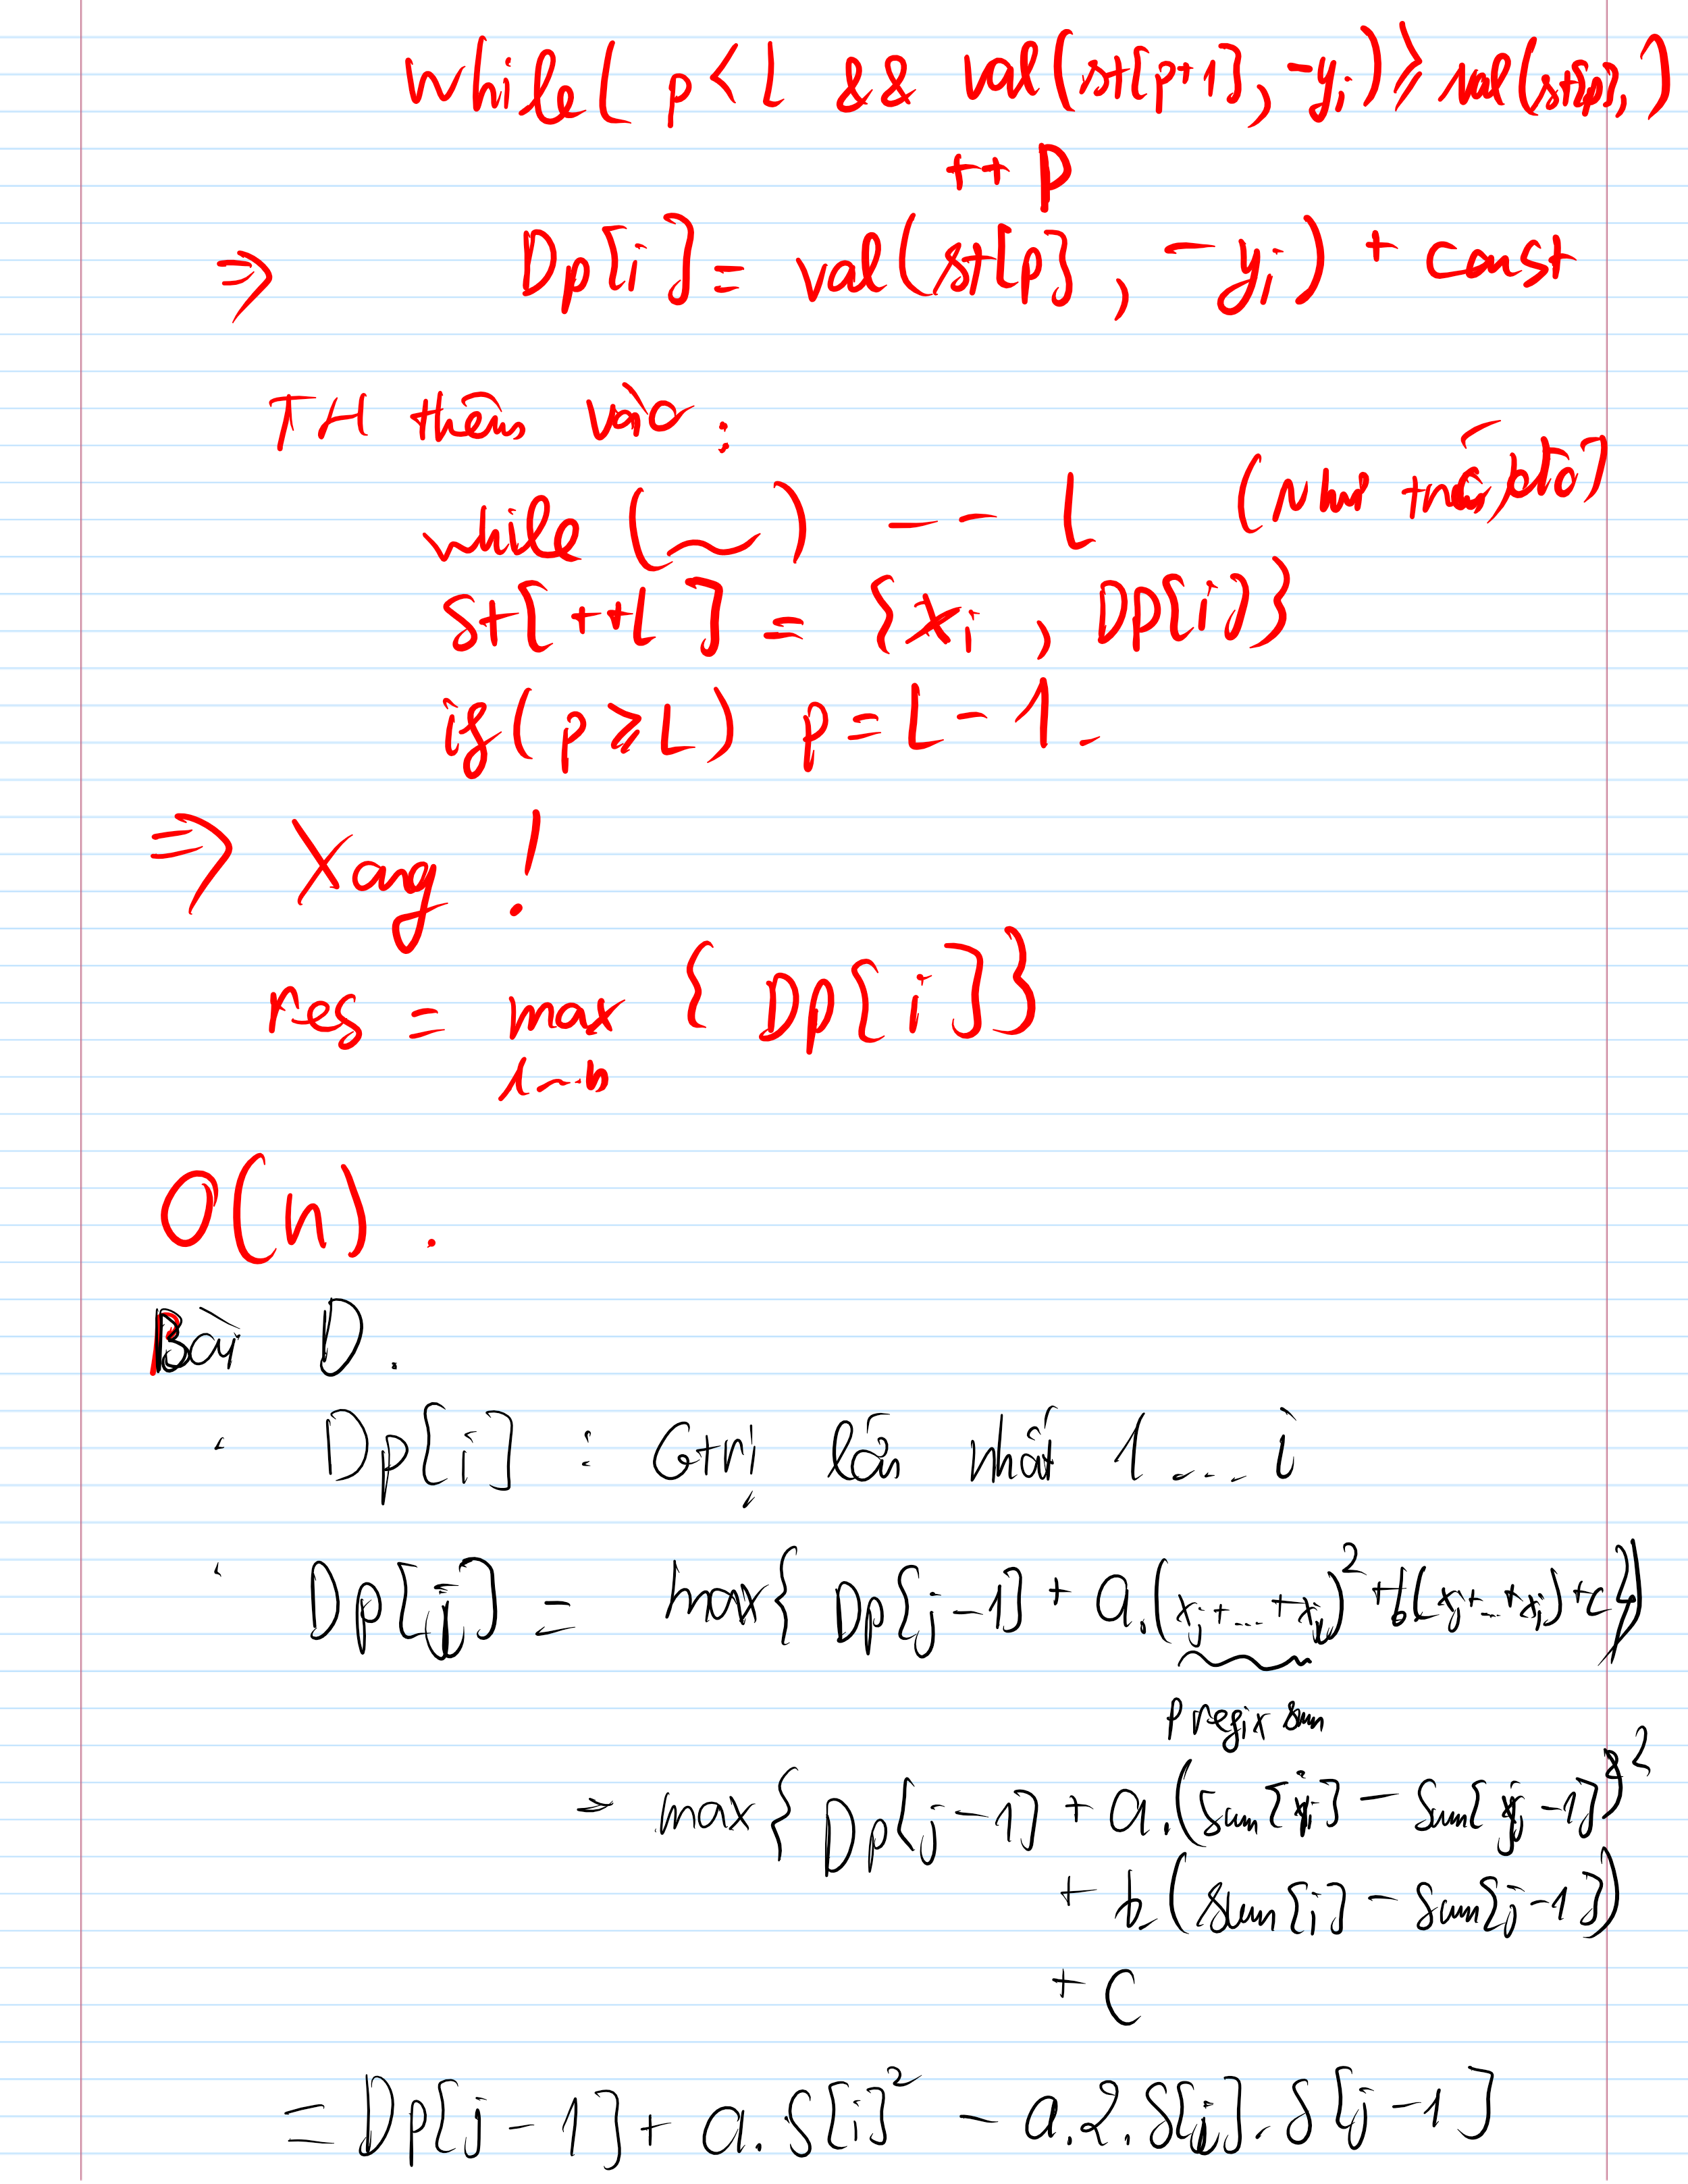 while( p < L && val(st[p+1], -yi) ≥ val(st[p], )
++ p
⇒ Dp[i] = val(st[p], -yi) + const
TH thêm vào :
while (~) -- L (Như trên, đó)
st[++L] = {xi, Dp[i]}
if( p ≥ L) p = L - 1.
⇒ Xong !
res = max { Dp[i]}
1...n
O(n).
Bài D.
· Dp[i] : Gtrị lớn nhất 1 ... i
· Dp[i] = max{ Dp[j-1] + a.(xj + ... + xi)² + b(xj + ... + xi) + c}
prefix sum
= max{ Dp[j-1] + a.(sum[i] - sum[j-1])²
+ b.(sum[i] - sum[j-1])
+ C
= Dp[j-1] + a.S[i]² - a.2.S[i].S[j-1]